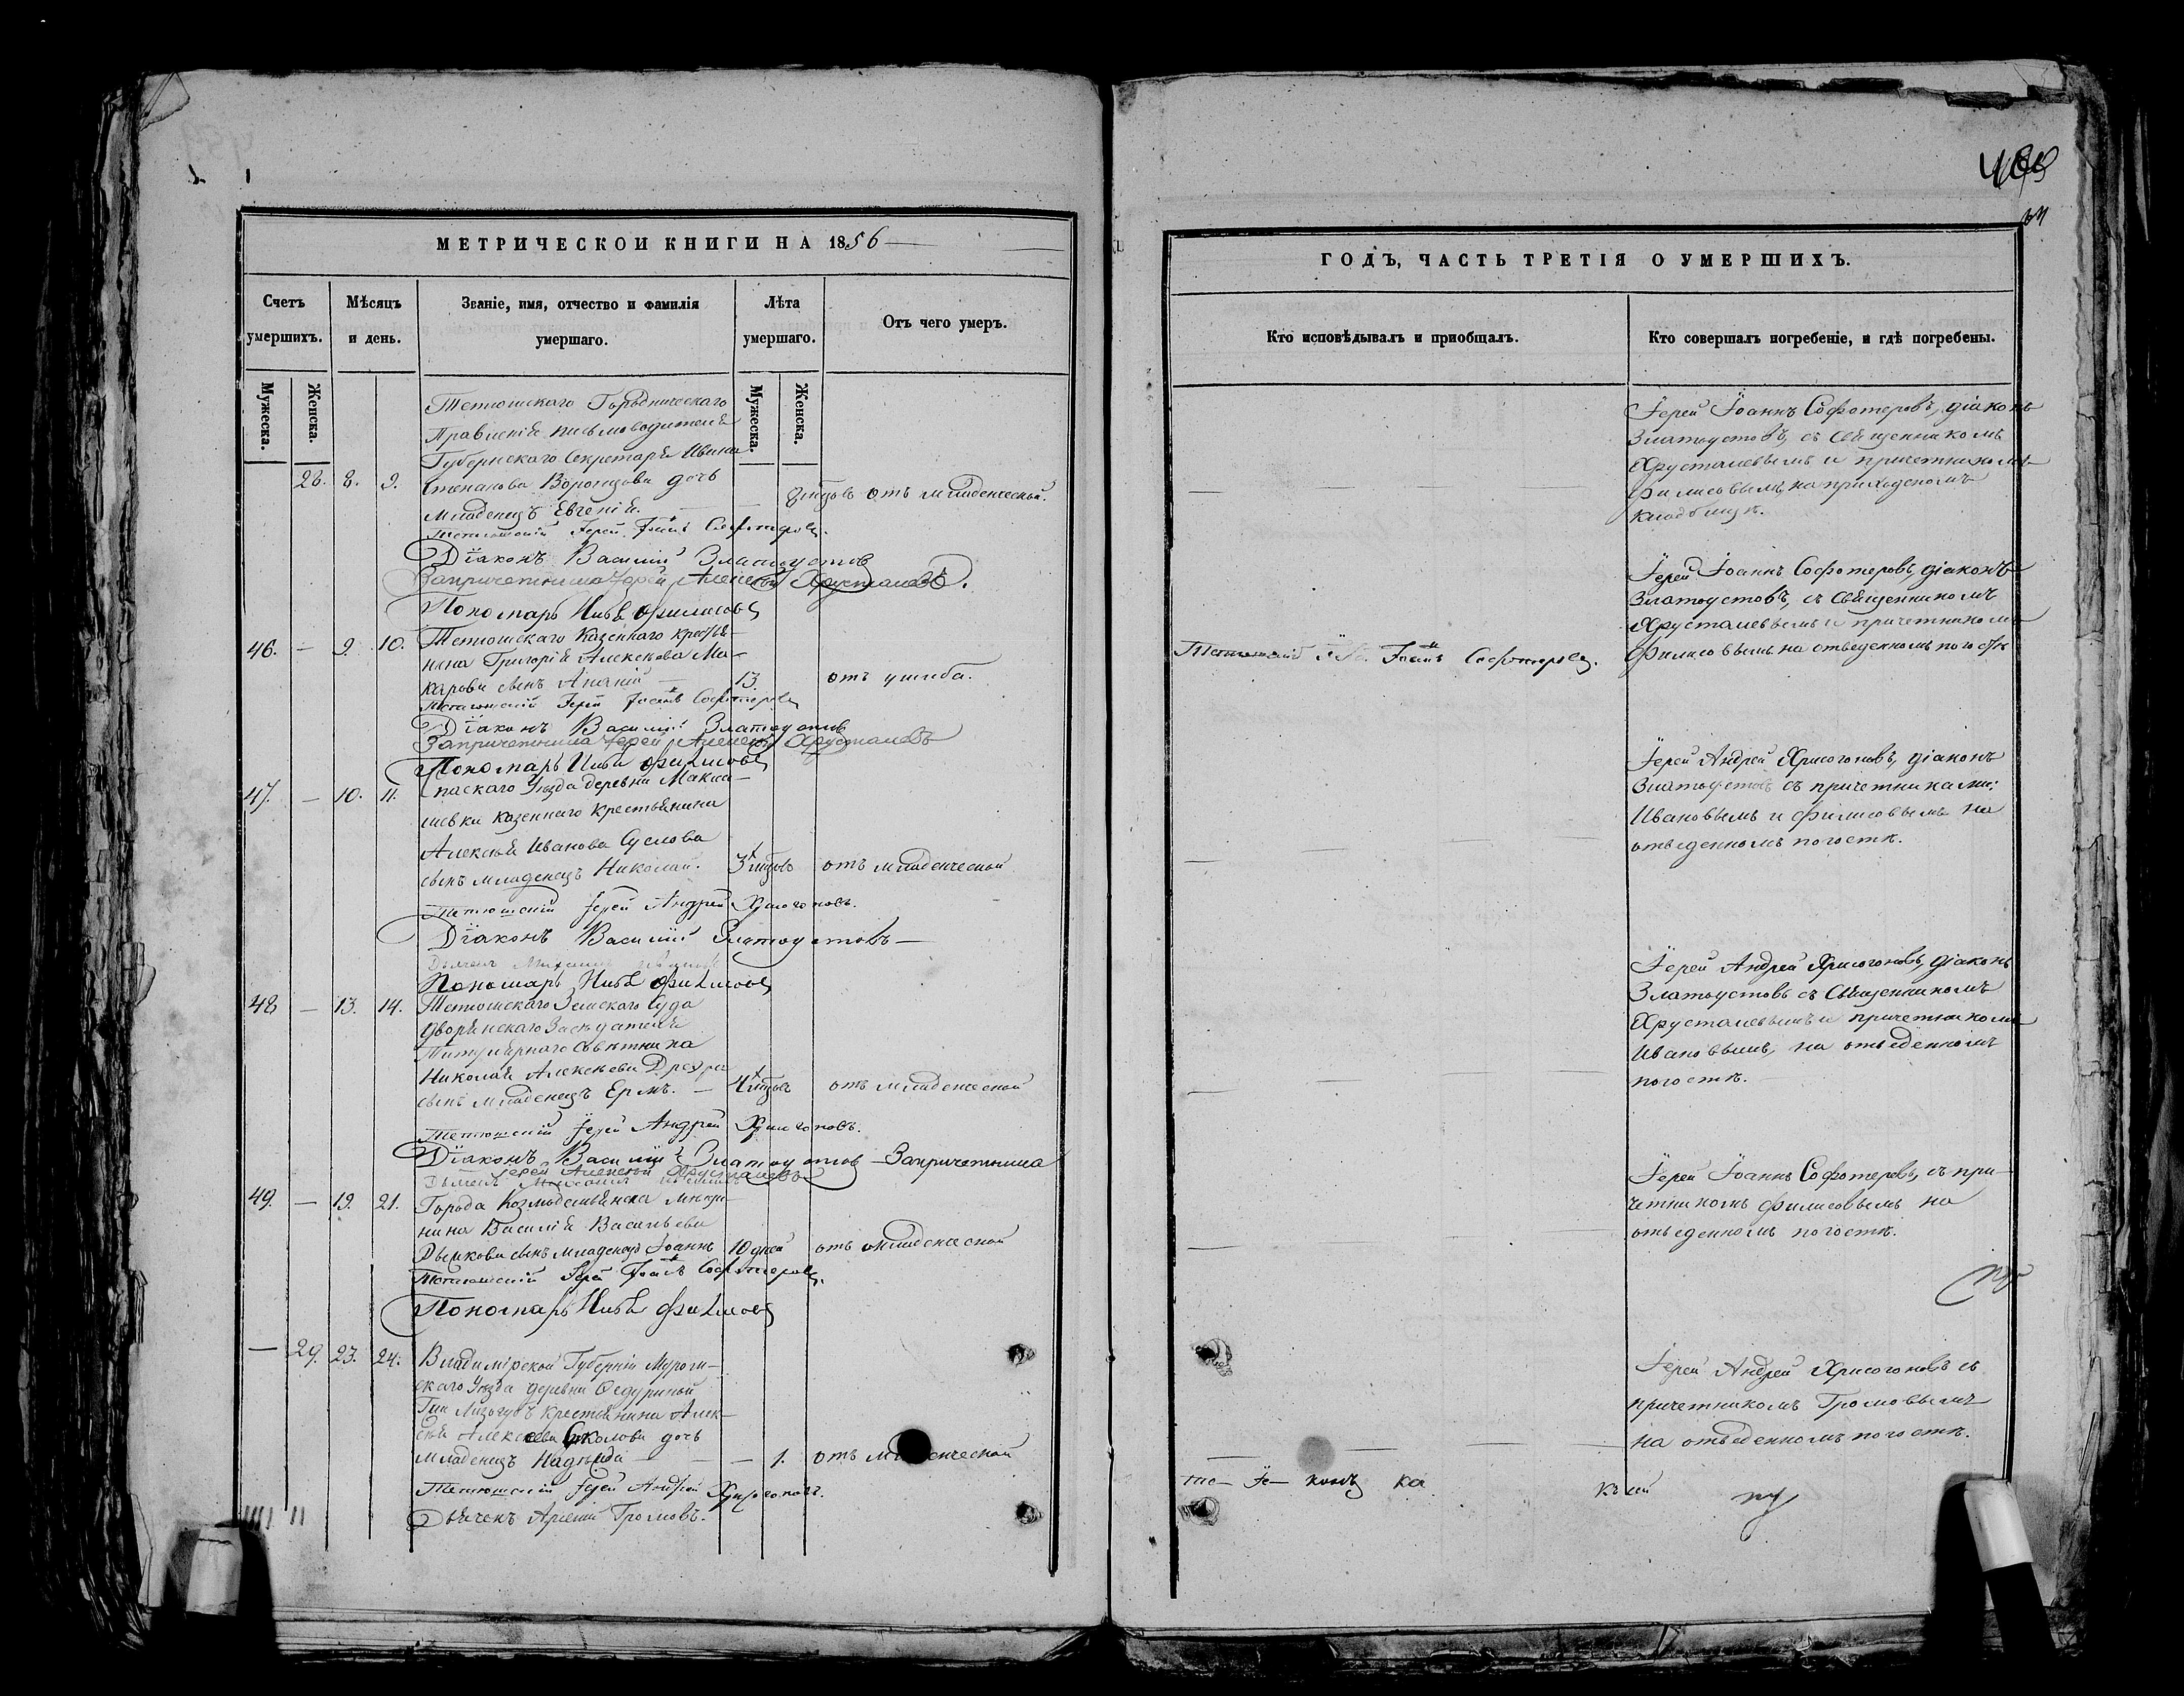 МЕТРИЧЕСКОЙ КНИГИ НА 1856
Счетъ умершихъ.
Мѣсяцъ и день.
Званіе, имя, отчество и фамилія умершаго.
Лѣта умершаго.
Отъ чего умеръ.
Мужеска.
Женска.
Мужеска.
Женска.
Тетюшскаго Городническаго
Правленія письмоводителя
Губернскаго Секретаря Ивана
28. 8. 9. Степанова Воронцова дочь
младенецъ Евгенія. отъ младенческой.
Тетюшскій Іерей Іоаннъ Софотеровъ.
Діаконъ Василій Златоустов
Запричетника Іерей Алексей Хрусталевъ.
Пономарь Филисовъ
46. — 9. 10. Тетюшскаго казеннаго крестья-
нина Григорія Алексѣева Ма-
карова сынъ Ананій — 13. отъ ушиба.
Тетюшскій Іерей Іоаннъ Софотеровъ
Діаконъ Василій Златоустов
Запричетника Іерей Алексей Хрусталевъ
Пономарь Филисовъ
47. — 10. 11. Спаскаго Уѣзда деревни Макси-
мовки казеннаго крестьянина
Алексѣя Иванова Суслова
сынъ младенецъ Николай. 3 мѣсцовъ отъ младенческой
Тетюшскій Іерей Андрей Хрисогоновъ.
Діаконъ Василій Златоустовъ —
Пономарь Филисовъ
48 — 13. 14. Тетюшскаго Земскаго Суда
Дворянскаго Засѣдателя
Титулярнаго Совѣтника
Николая Алексѣева
сынъ младенецъ Ермъ. — 4 мѣсцовъ отъ младенческой
Тетюшскій Іерей Андрей Хрисогоновъ.
Діаконъ Василій Златоустов — Запричетника
Іерей Алексей Хрусталевъ
49. — 19. 21. Города Козмодемьянска мѣща-
нина Василія Васильева
Дышкова сынъ младенецъ Іоаннъ 10 дней отъ младенческой
Тетюшскій Іерей Іоаннъ Софотеровъ.
Пономарь Филисовъ
— 29. 23. 24. Владимірской Губерніи
скаго Уѣзда деревни Ѳедуриной
крестьянина Алек-
сѣя Алексеева Соколова дочь
младенецъ Надежда — — 1. отъ младенческой
Тетюшскій Іерей Андрей Хрисогоновъ.
Дьячекъ Арсеній Громовъ.
ГОДЪ, ЧАСТЬ ТРЕТІЯ О УМЕРШИХЪ.
Кто исповѣдывалъ и пріобщалъ.
Кто совершалъ погребеніе, и гдѣ погребены.
Іерей Іоаннъ Софотеровъ, діаконъ
Златоустовъ, съ Священникомъ
Хрусталевымъ и причетникомъ
Филисовымъ, на приходскомъ
кладбищѣ.
Іерей Іоаннъ Софотеровъ, діаконъ
Златоустовъ, съ Священникомъ
Хрусталевымъ и причетникомъ
Тетюшскій Іер. Іоаннъ Софотеровъ. Филисовымъ на отведенномъ погостѣ
Іерей Андрей Хрисогоновъ, діаконъ
Златоустовъ съ причетниками:
Ивановымъ и Филисовымъ на
отведенномъ погостѣ.
Іерей Андрей Хрисогоновъ, діаконъ
Златоустовъ съ Священникомъ
Хрусталевымъ и причетникомъ
Ивановымъ, на отведенномъ
погостѣ.
Іерей Іоаннъ Софотеровъ, съ при-
четникомъ Филисовымъ на
отведенномъ погостѣ.
Іерей Андрей Хрисогоновъ съ
причетникомъ Громовымъ
на отведенномъ погостѣ.